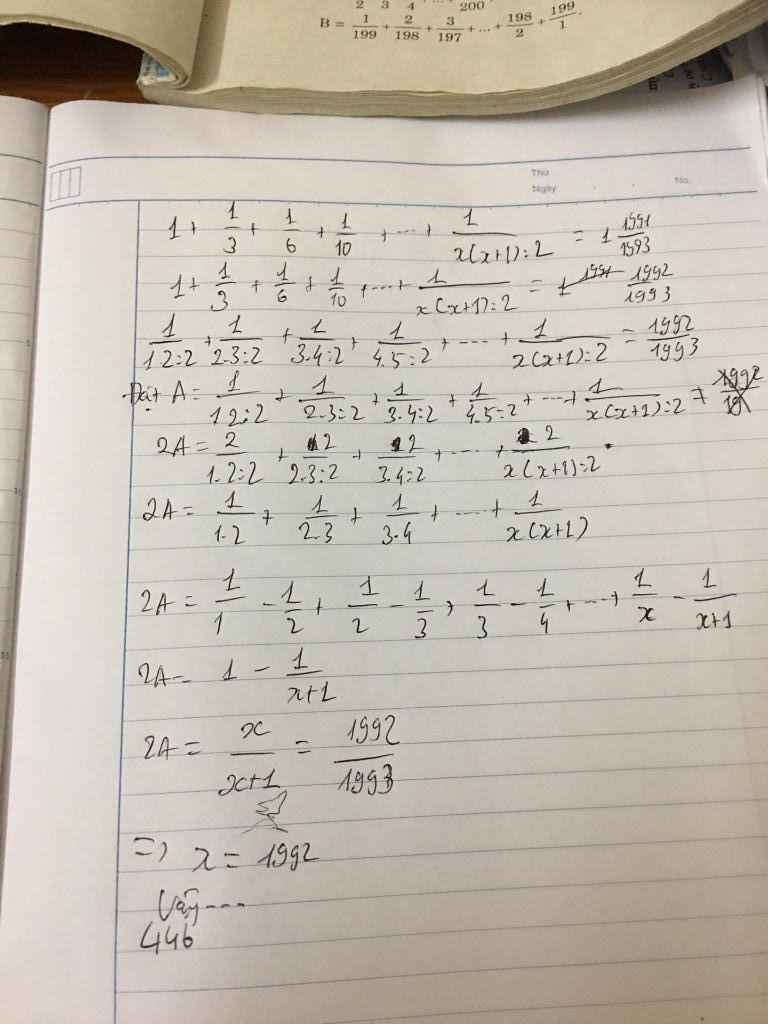 2 3 4 200
B = 1/199 + 2/198 + 3/197 + ... + 198/2 + 199/1.
Thứ
Ngày No.
1 + 1/3 + 1/6 + 1/10 + ... + 1/x(x+1):2 = 1 1991/1993
1 + 1/3 + 1/6 + 1/10 + ... + 1/x(x+1):2 = 1 1991 1992/1993
1/1.2:2 + 1/2.3:2 + 1/3.4:2 + 1/4.5:2 + ... + 1/x(x+1):2 = 1992/1993
Đặt A = 1/1.2:2 + 1/2.3:2 + 1/3.4:2 + 1/4.5:2 + ... + 1/x(x+1):2 = 1992/19
2A = 2/1.2:2 + 2/2.3:2 + 2/3.4:2 + ... + 2/x(x+1):2
2A = 1/1.2 + 1/2.3 + 1/3.4 + ... + 1/x(x+1)
2A = 1/1 - 1/2 + 1/2 - 1/3 + 1/3 - 1/4 + ... + 1/x - 1/x+1
2A = 1 - 1/x+1
2A = x/x+1 = 1992/1993
=> x = 1992
Vậy ...
446